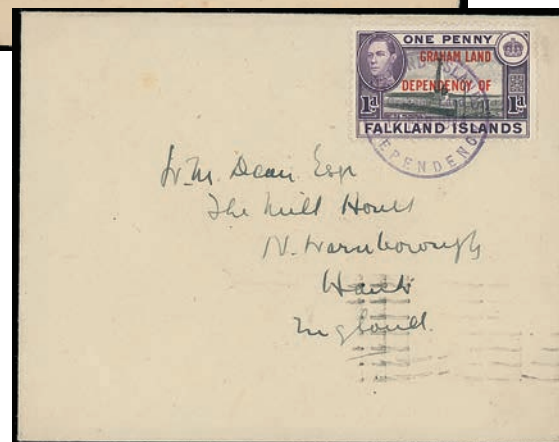 ONE PENNY
GRAHAM LAND
DEPENDENCY OF
1d 1d
FALKLAND ISLANDS
DEPENDENC
W.M. Dean Esq
The Mill House
N. Warnborough
Hants
England.